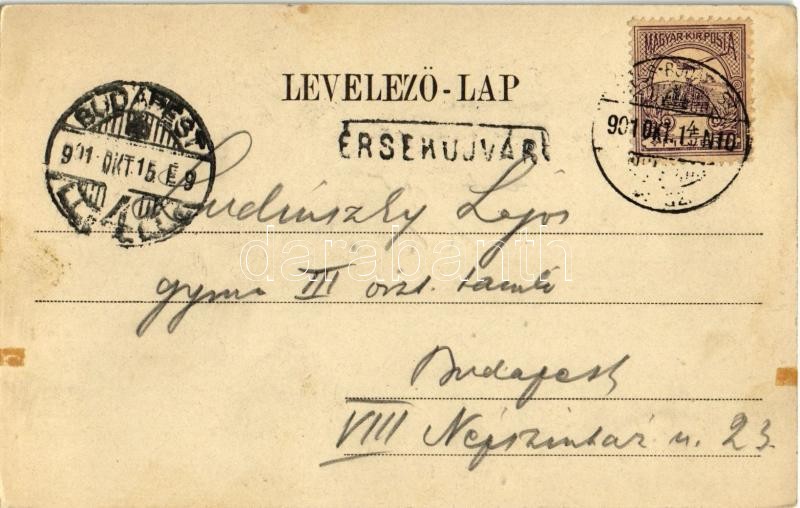 MAGYAR·KIR·POSTA
LEVELEZŐ-LAP
ÉRSEKUJVÁR
BUDAPEST
901 OKT. 15 É 9
901 OKT. 14 N10
Lajos
darabanth
gymn III oszt. tanuló
Budapest
VIII Népszinház u. 23.